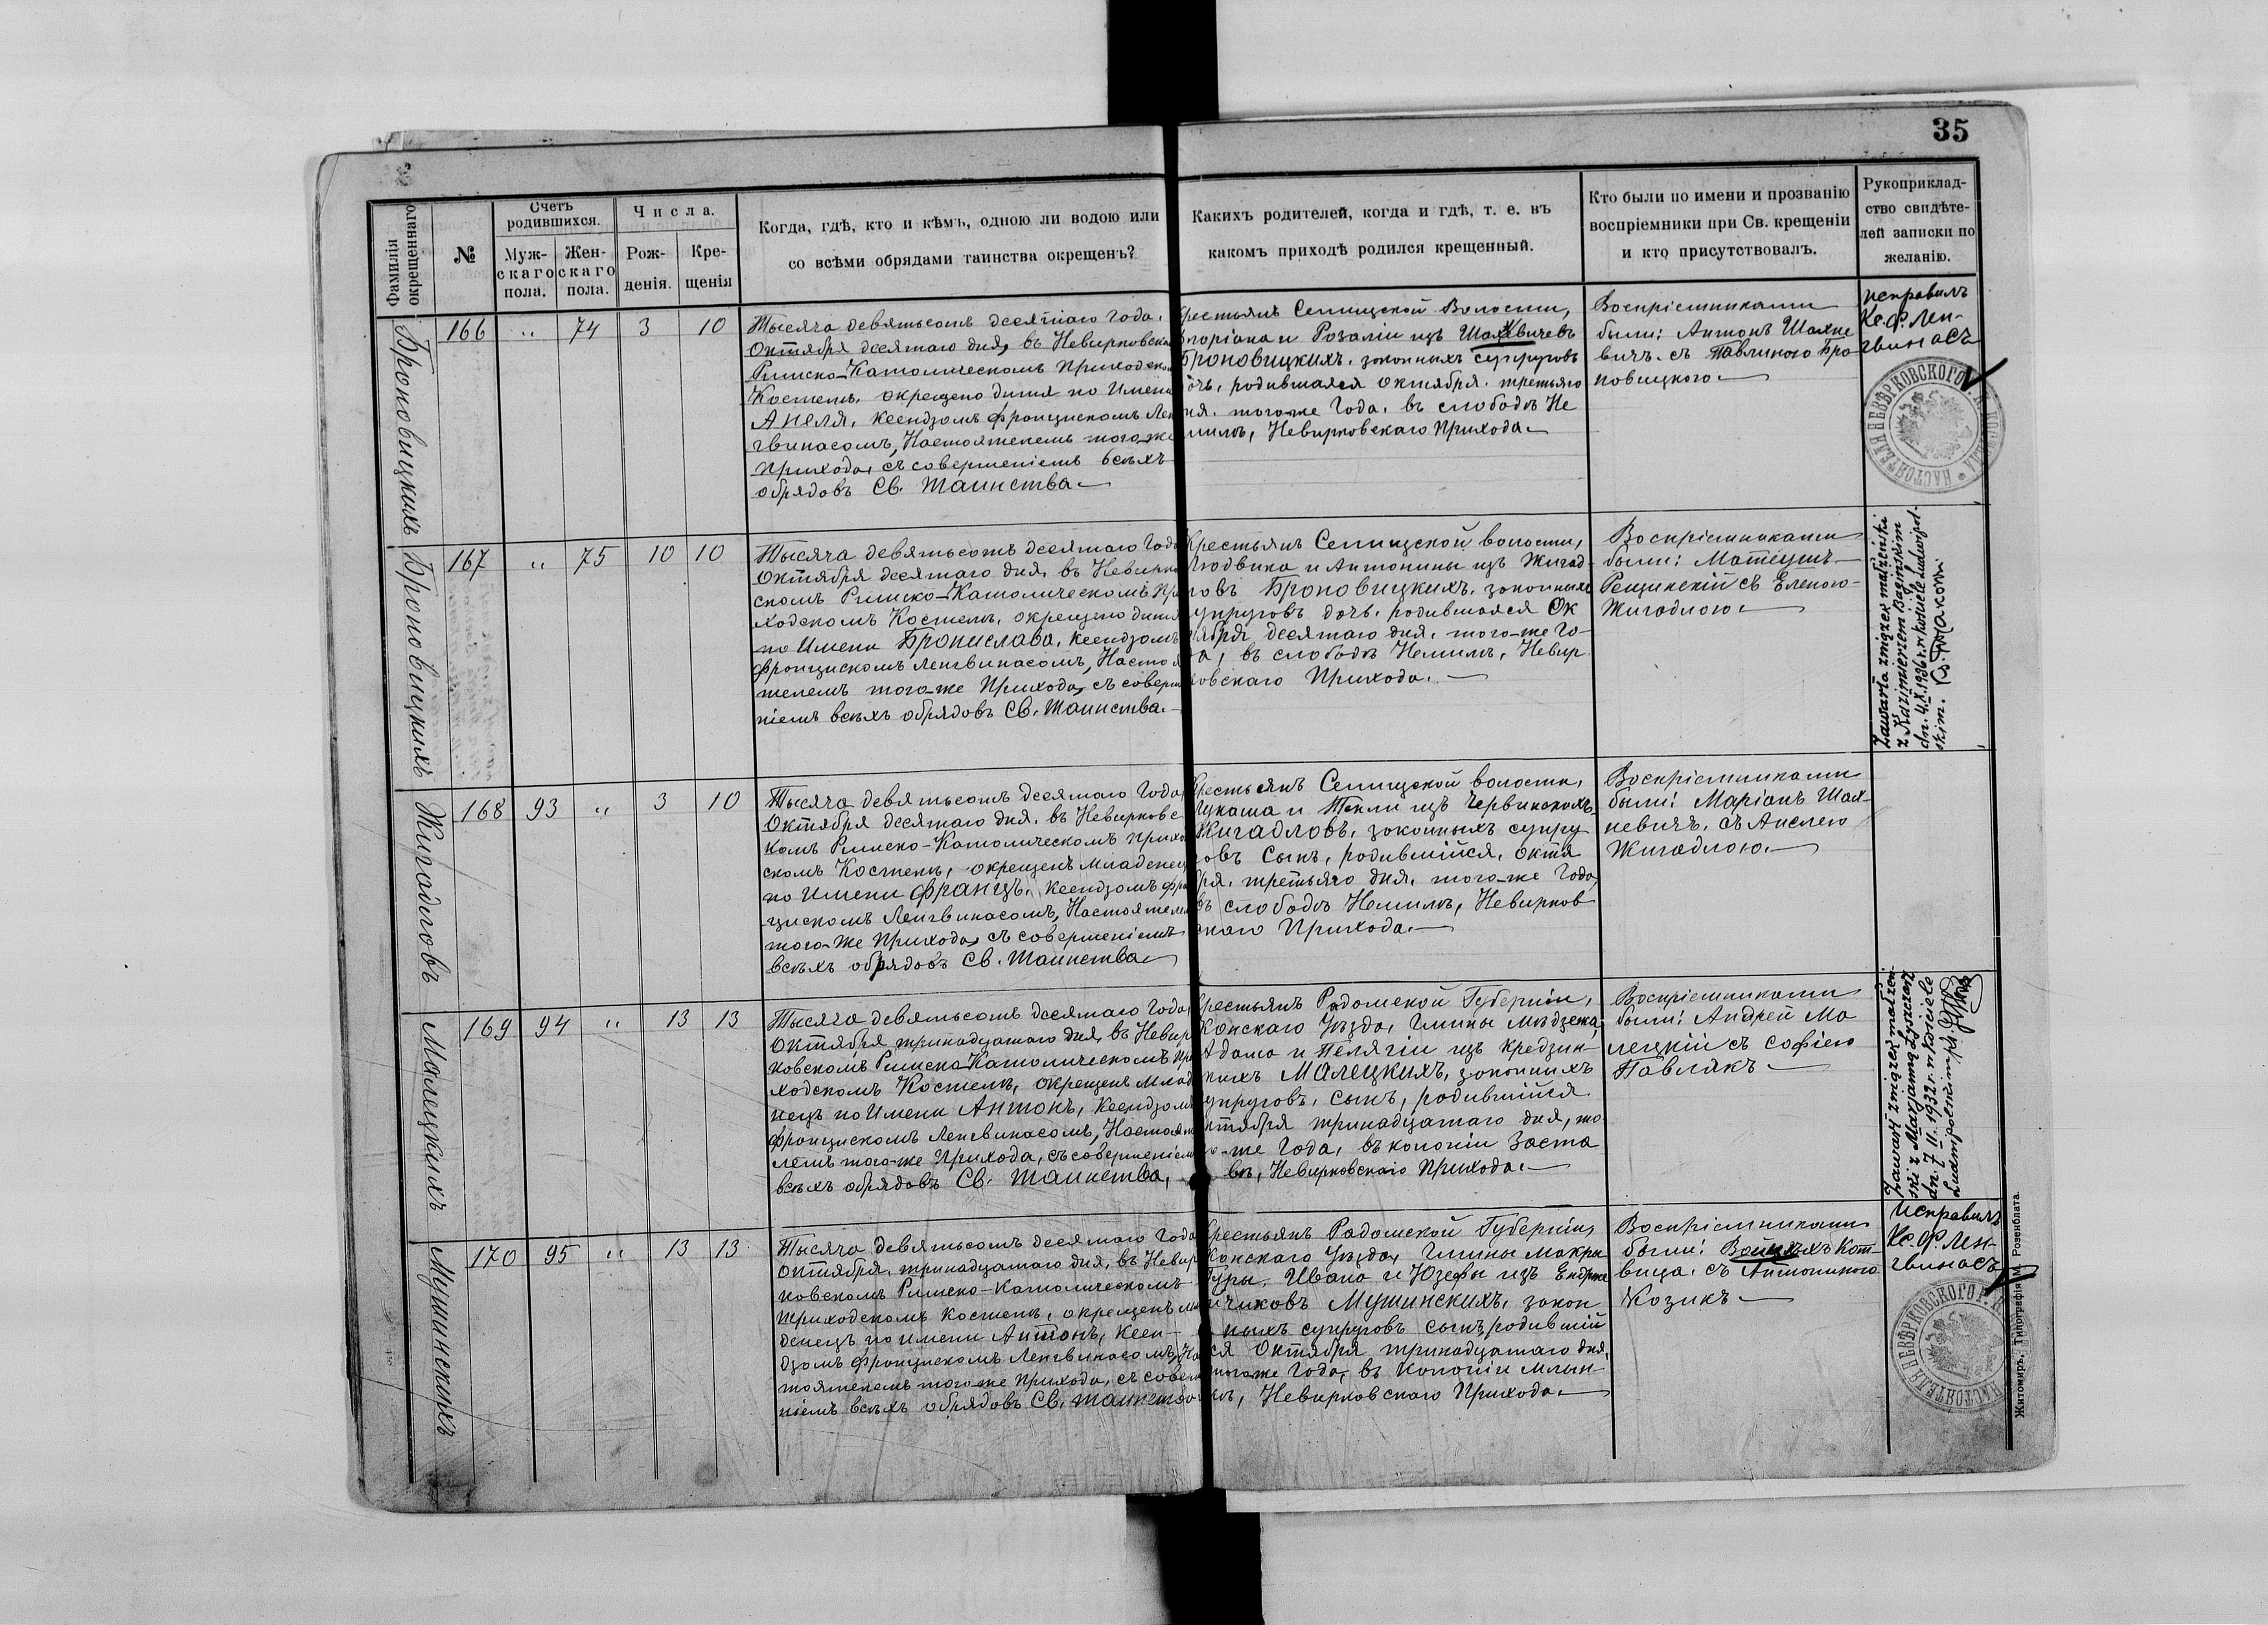 35
Фамилія окрещеннаго
№
Счетъ родившихся.
Муж-
скаго
пола.
Жен-
скаго
пола.
Числа.
Рож-
денія.
Кре-
щенія
Когда, гдѣ, кто и кѣмъ, одною ли водою или
со всѣми обрядами таинства окрещенъ?
Какихъ родителей, когда и гдѣ, т. е. въ
какомъ приходѣ родился крещенный.
Кто были по имени и прозванію
воспріемники при Св. крещеніи
и кто присутствовалъ.
Рукоприклад-
ство свидѣте-
лей записки по
желанію.
Броновицкихъ
166 " 74 3 10
Тысяча девятьсотъ десятаго года,
Октября десятаго дня, въ Невирковско
Римско-Католическомъ Приходско
Костелѣ, окрещено дитя по Имени
Анеля, Ксендзомъ Францискомъ Лен
гвинасомъ, Настоятелемъ того-же
Прихода, съ совершеніемъ всѣхъ
обрядовъ Св. Таинства
рестьянъ Селищской Волости,
лоріана и Розаліи изъ Шахневичевъ
Броновицкихъ, законныхъ супруговъ
очь, родившаяся Октября третьяго
ня, того-же Года, въ слободѣ Не
милѣ, Невирковскаго Прихода
Воспріемниками
были: Антонъ Шахне
вичъ съ Павлиною Бро
новицкою
исправилъ
Кс. Ф. Лен-
гвинасъ
Броновицкихъ
167 " 75 10 10
Тысяча девятьсотъ десятаго Года
Октября десятаго дня, въ Невирко
скомъ Римско-Католическомъ При
ходскомъ Костелѣ, окрещено дитя
по Имени Бронислава, Ксендзомъ
Францискомъ Ленгвинасомъ, Настоя
телемъ того-же Прихода, съ соверше
ніемъ всѣхъ обрядовъ Св. Таинства
Крестьянъ Селищской волости,
Людвика и Антонины изъ Жигад-
ловъ Броновицкихъ, законныхъ
супруговъ дочь, родившаяся Ок
тября десятаго дня, того-же Го-
да, въ слободѣ Немилѣ, Невир
ковскаго Прихода.
Воспріемниками
были: Матеушъ
Рещинскій съ Еленою
Жигадлою
Zawarła związek małżeński
z Kazimierzem Bagińskim
dn. 4.X.1936 r. w kościele Ludwipol-
skim.
Жигадловъ
168 93 " 3 10
Тысяча девятьсотъ десятаго Года,
Октября десятаго дня, въ Невирковс
комъ Римско-Католическомъ Прихо
скомъ Костелѣ, окрещенъ младенец
по Имени Францъ, Ксендзомъ Фра
цискомъ Ленгвинасомъ, Настояте
того-же Прихода, съ совершеніемъ
всѣхъ обрядовъ Св. Таинства
рестьянъ Селищской волости,
Лукаша и Текли изъ Червинскихъ
Жигадловъ, законныхъ супру
овъ сынъ, родившійся, Октя
бря третьяго дня, того-же Года,
въ слободѣ Немилѣ, Невирков
скаго Прихода
Воспріемниками
были: Маріанъ Шах-
невичъ съ Анелею
Жигадлою
Малецкихъ
169 94 " 13 13
Тысяча девятьсотъ десятаго Года,
Октября тринадцатаго дня, въ Невир
ковскомъ Римско-Католическомъ При
ходскомъ Костелѣ, окрещенъ Млад
нецъ по Имени Антонъ, Ксендзомъ
Францискомъ Ленгвинасомъ, Настоя
лемъ того-же Прихода, съ совершеніем
всѣхъ обрядовъ Св. Таинства,
рестьянъ Радомской Губерніи,
Конскаго Уѣзда, Гмины Мѣдзежа,
Адама и Пелягіи изъ Кредзин-
кихъ Малецкихъ, законныхъ
супруговъ, сынъ, родившійся
ктября тринадцатаго дня, то
го-же Года, въ колоніи Заста
вѣ, Невирковскаго Прихода.
Воспріемниками
были: Андрей Ма
лецкій съ Софіею
Павлякъ
Zawarł związek małżeń-
ski z Marjanną Łyszczarz
dn. 7.II.1932 r. w kościele
Ludwipolskim
Мушинскихъ
170 95 " 13 13
Тысяча девятьсотъ десятаго Года
Октября, тринадцатаго дня, въ Невир
ковскомъ Римско-Католическомъ
Приходскомъ Костелѣ, окрещенъ мла
денецъ по имени Антонъ, Ксен-
дзомъ Францискомъ Ленгвинасомъ, На
тоятелемъ того-же Прихода, съ совер
ніемъ всѣхъ обрядовъ Св. Таинства
рестьянъ Радомской Губерніи,
Конскаго Уѣзда, Гмины Мокры
Гуры, Ивана и Юзефы изъ Ендрже
йчиковъ Мушинскихъ, закон
ныхъ супруговъ сынъ, родившій
ся Октября тринадцатаго дня,
того же Года, въ Колоніи Млын
кѣ, Невирковскаго Прихода
Воспріемниками
были: Войцѣхъ Кот-
вица съ Антониною
Козикъ
исправилъ
Кс. Ф. Лен-
гвинасъ
Житомиръ, Типографія М. Розенблата.